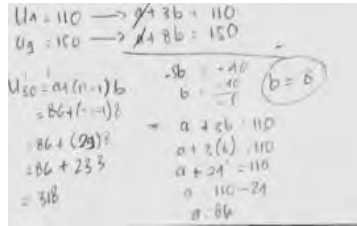 U4 = 110 → a + 3b = 110
U9 = 150 → a + 8b = 150
-5b = -40
b = -40/-5
b = 8
U30 = a + (n-1)b
= 86 + (n-1)8
= 86 + (29)8
= 86 + 233
= 318
→ a + 3b = 110
a + 3(8) = 110
a + 24 = 110
a = 110 - 24
a = 86